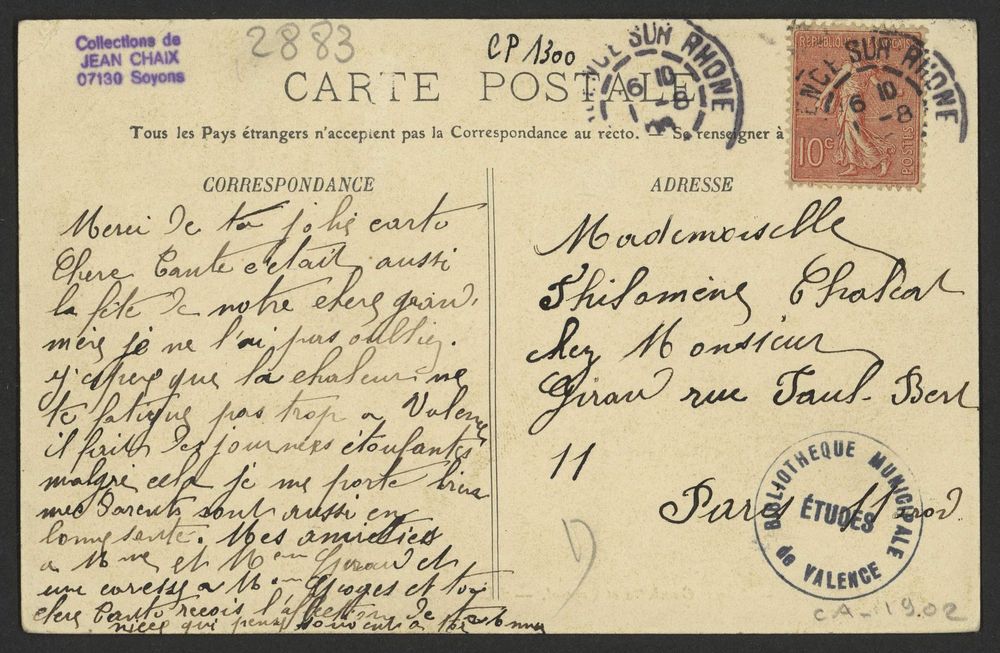 Collections de
JEAN CHAIX
07130 Soyons
2883
CP 1300
CARTE POSTALE
Tous les Pays étrangers n'acceptent pas la Correspondance au recto. — Se renseigner à
ENCE SUR RHONE
6 10 -8
REPUBLIQUE FRANÇAISE
10c
POSTES
ENCE SUR RHONE
6 10 -8
CORRESPONDANCE
Merci de ta jolie carte
Chere Tante c'était aussi
la fête de notre chere grand
mère je ne l'ai pas oubliez.
J'espere que la chaleur ne
te fatigue pas trop a Valence
il fait des journees étoufantes
malgré cela je me porte bien
mes Parents sont aussi en
bonne santé. Mes amitiées
a Mme et Mr Giraud et
une caresse a Mr Goges et toi
chere Tante recois l'affection de ta
niece qui pense souvent a toi
ADRESSE
Mademoiselle
Philomène
chez Monsieur
Giraud rue Paul-Bert
11
Paris
BIBLIOTHEQUE MUNICIPALE
ÉTUDES
de VALENCE
CA-1902